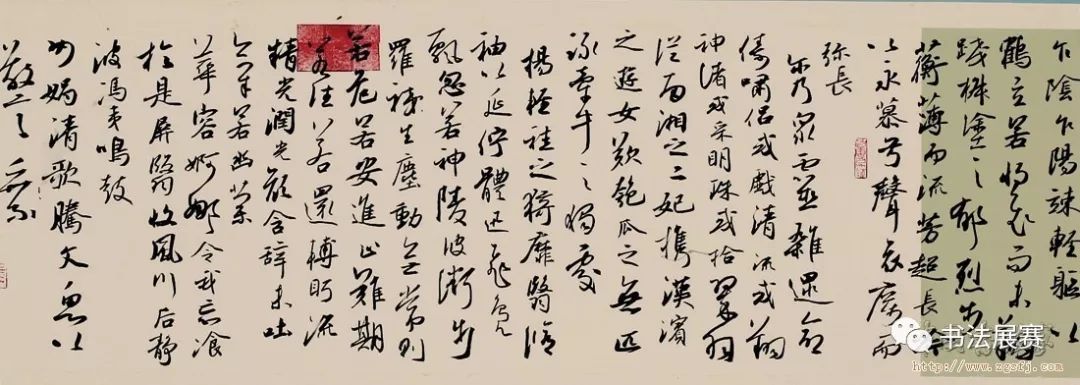 乍陰乍陽竦輕軀以
鶴立若將飛而未翔
踐椒塗之郁烈步
蘅薄而流芳超長吟
以永慕兮聲哀厲而
弥長
尔乃衆霊並雜遝命
儔嘯侶或戲清流或翔
神渚或采明珠或拾翠羽
從南湘之二妃攜漢濱
之遊女歎匏瓜之無匹
詠牽牛之獨處
揚輕袿之猗靡翳脩
袖以延佇體迅飛鳧
飄忽若神陵波微步
羅襪生塵動無常則
若危若安進止難期
若往若還轉眄流
精光潤光顏含辭未吐
氣若幽蘭
華容婀娜令我忘飡
於是屏翳收風川后靜
波馮夷鳴鼓
女媧清歌騰文魚以
书法展赛
http://www.zgsfj.com